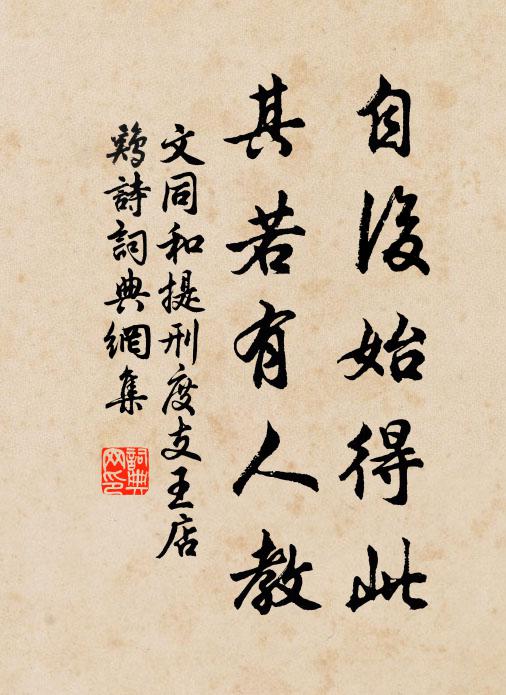 自後始得此
其若有人教
文同和提刑度支王店
鷄詩詞典網集
詞典网印